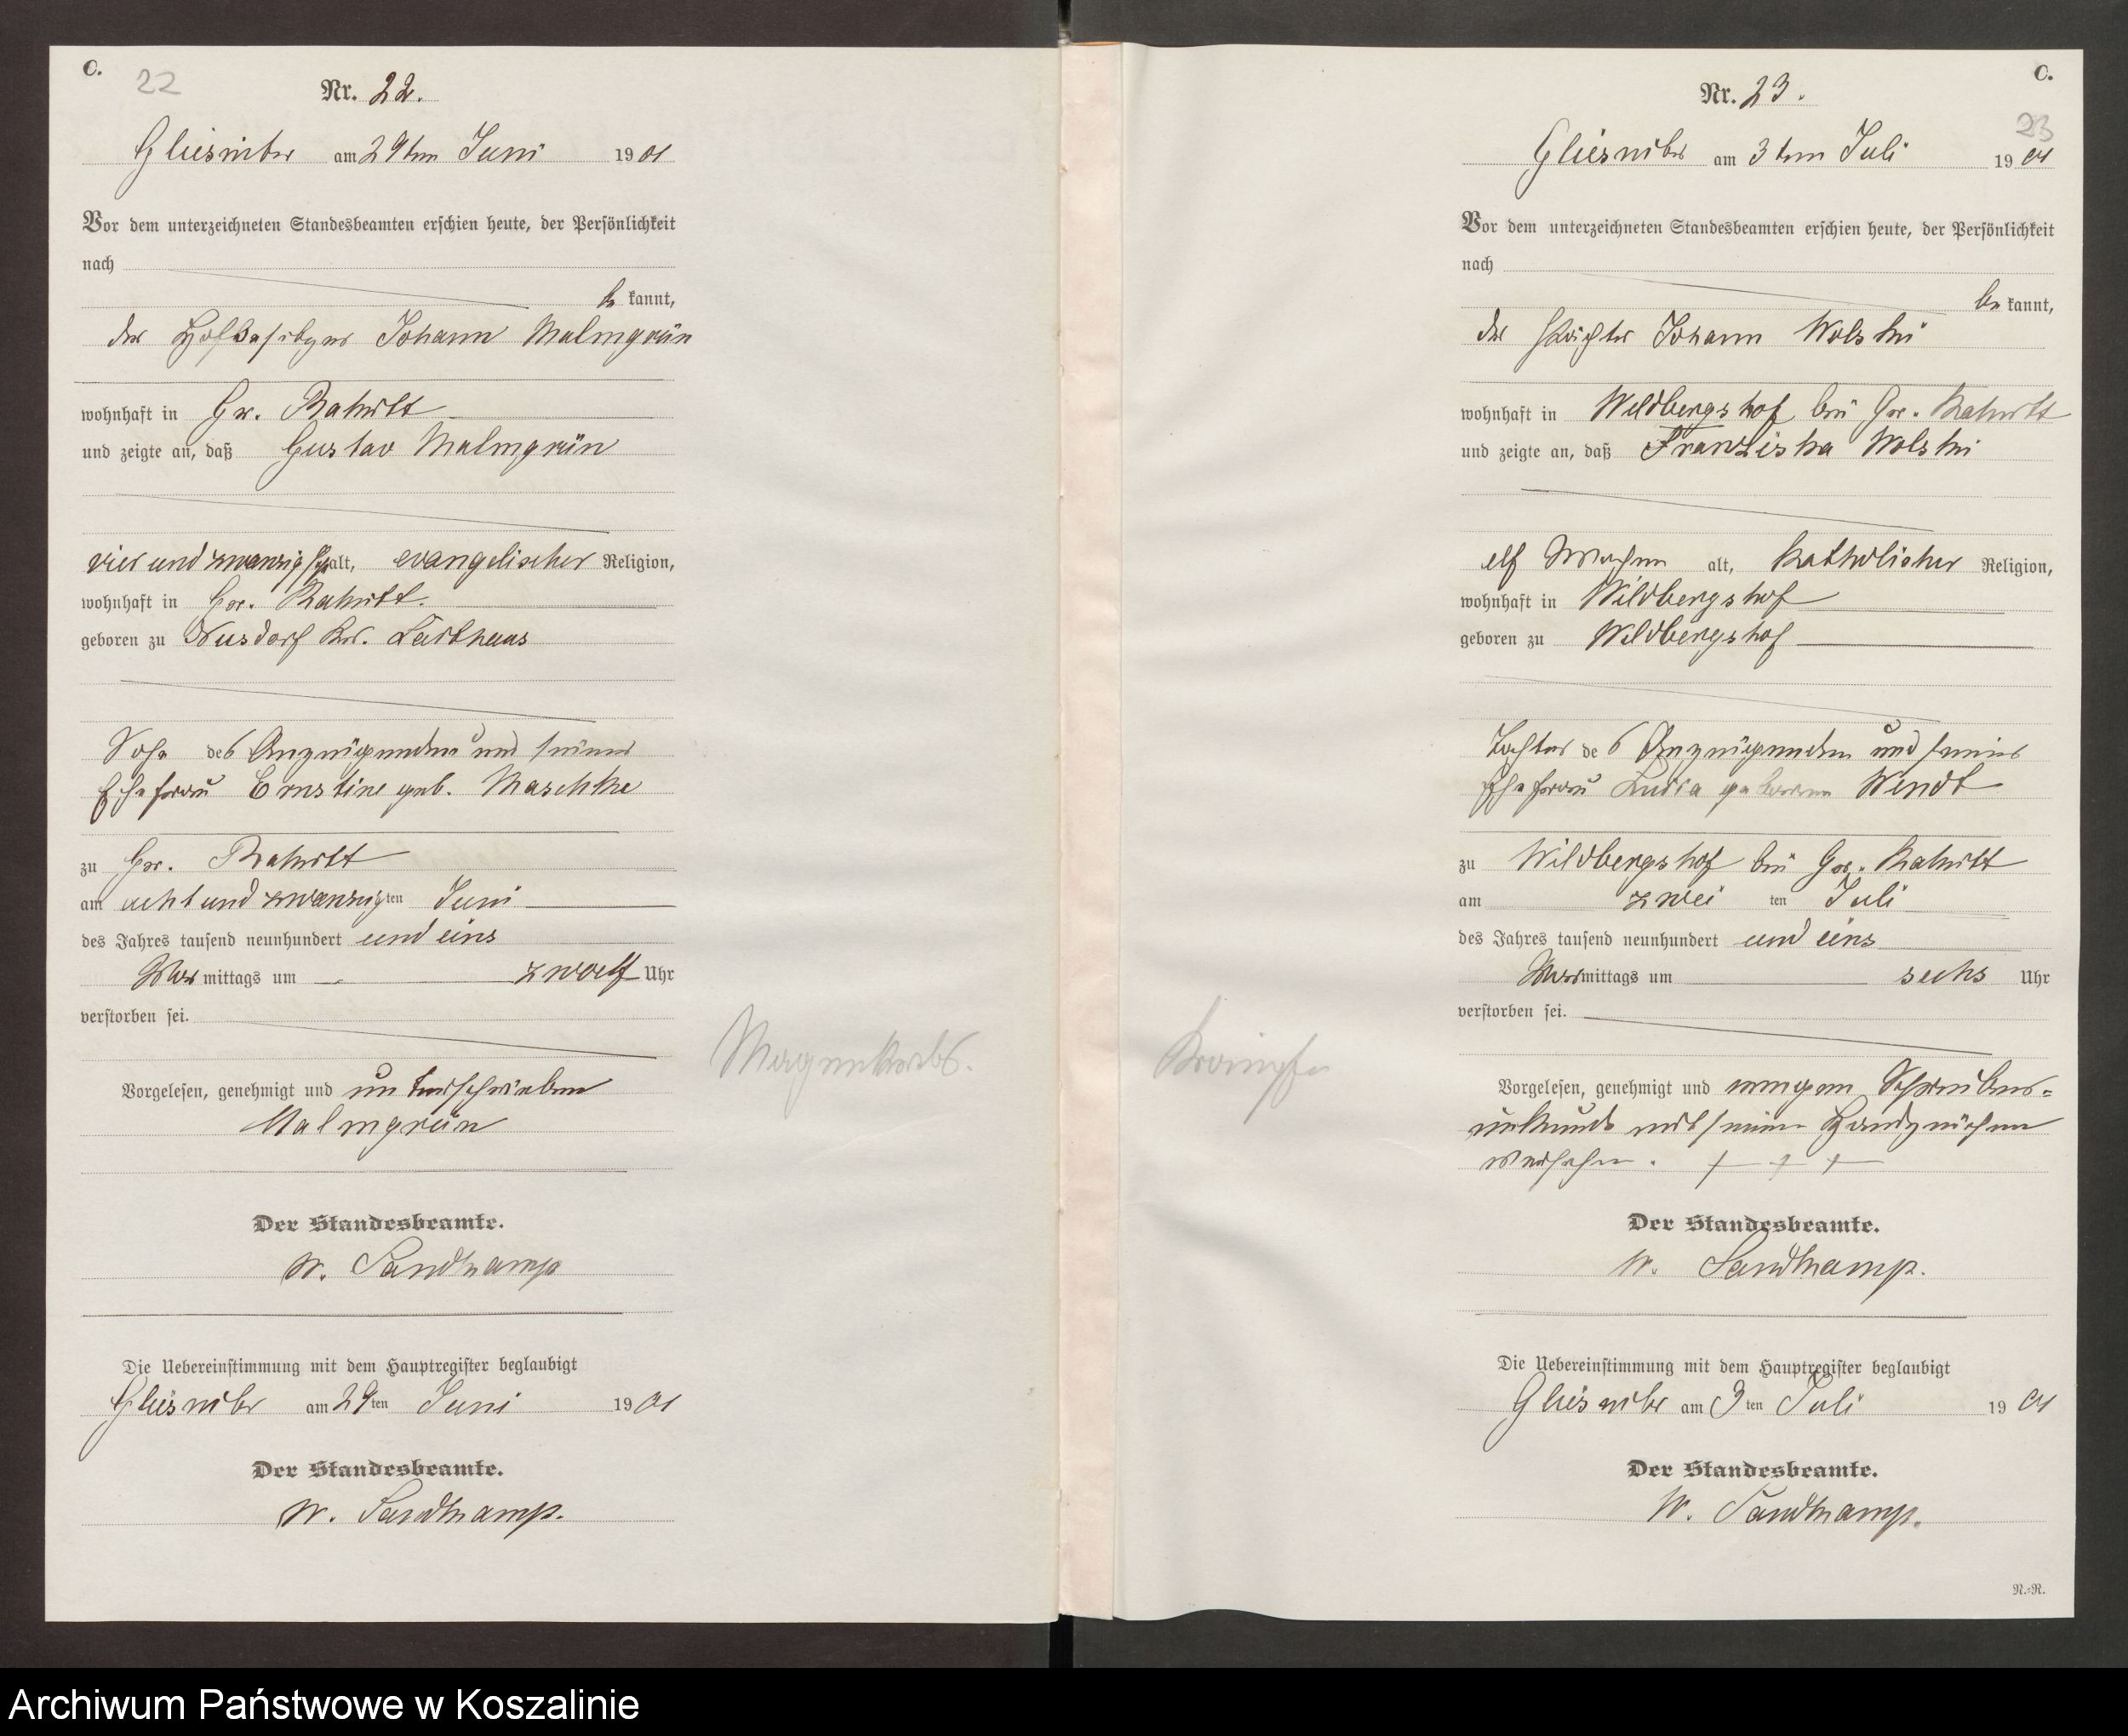 C.
22
Nr. 22.
Gliesnitz am 29ten Juni 1901
Vor dem unterzeichneten Standesbeamten erschien heute, der Persönlichkeit
nach
be kannt,
der Hofbesitzer Johann Malmgrün
wohnhaft in Gr. Rakitt
und zeigte an, daß Gustav Malmgrün
vier und zwanzig J. alt, evangelischer Religion,
wohnhaft in Gr. Rakitt.
geboren zu Neusdorf Kr.
Sohn des Anzeigenden und seiner
Ehefrau Ernstine geb. Maschke
zu Gr. Rakitt
am acht und zwanzigten Juni
des Jahres tausend neunhundert und eins
Vormittags um zwoelf Uhr
verstorben sei.
Magenkrebs.
Vorgelesen, genehmigt und unterschrieben
Malmgrün
Der Standesbeamte.
W. Sandkamp
Die Uebereinstimmung mit dem Hauptregister beglaubigt
Gliesnitz am 29ten Juni 1901
Der Standesbeamte.
W. Sandkamp.
C.
Nr. 23.
23
Gliesnitz am 3ten Juli 1901
Vor dem unterzeichneten Standesbeamten erschien heute, der Persönlichkeit
nach
be kannt,
der Pächter Johann Wolski
wohnhaft in Wildbergshof bei Gr. Rakitt
und zeigte an, daß Franziska Wolski
elf Wochen alt, Katholischer Religion,
wohnhaft in Wildbergshof
geboren zu Wildbergshof
Tochter des Anzeigenden und seiner
Ehefrau geborene Wendt
zu Wildbergshof bei Gr. Rakitt
am zwei ten Juli
des Jahres tausend neunhundert und eins
Vormittags um sechs Uhr
verstorben sei.
Krämpfe
Vorgelesen, genehmigt und wegen Schreibens-
unkunde mit seinem Handzeichen
versehen. + + +
Der Standesbeamte.
W. Sandkamp.
Die Uebereinstimmung mit dem Hauptregister beglaubigt
Gliesnitz am 3ten Juli 1901
Der Standesbeamte.
W. Sandkamp.
N.=N.
Archiwum Państwowe w Koszalinie